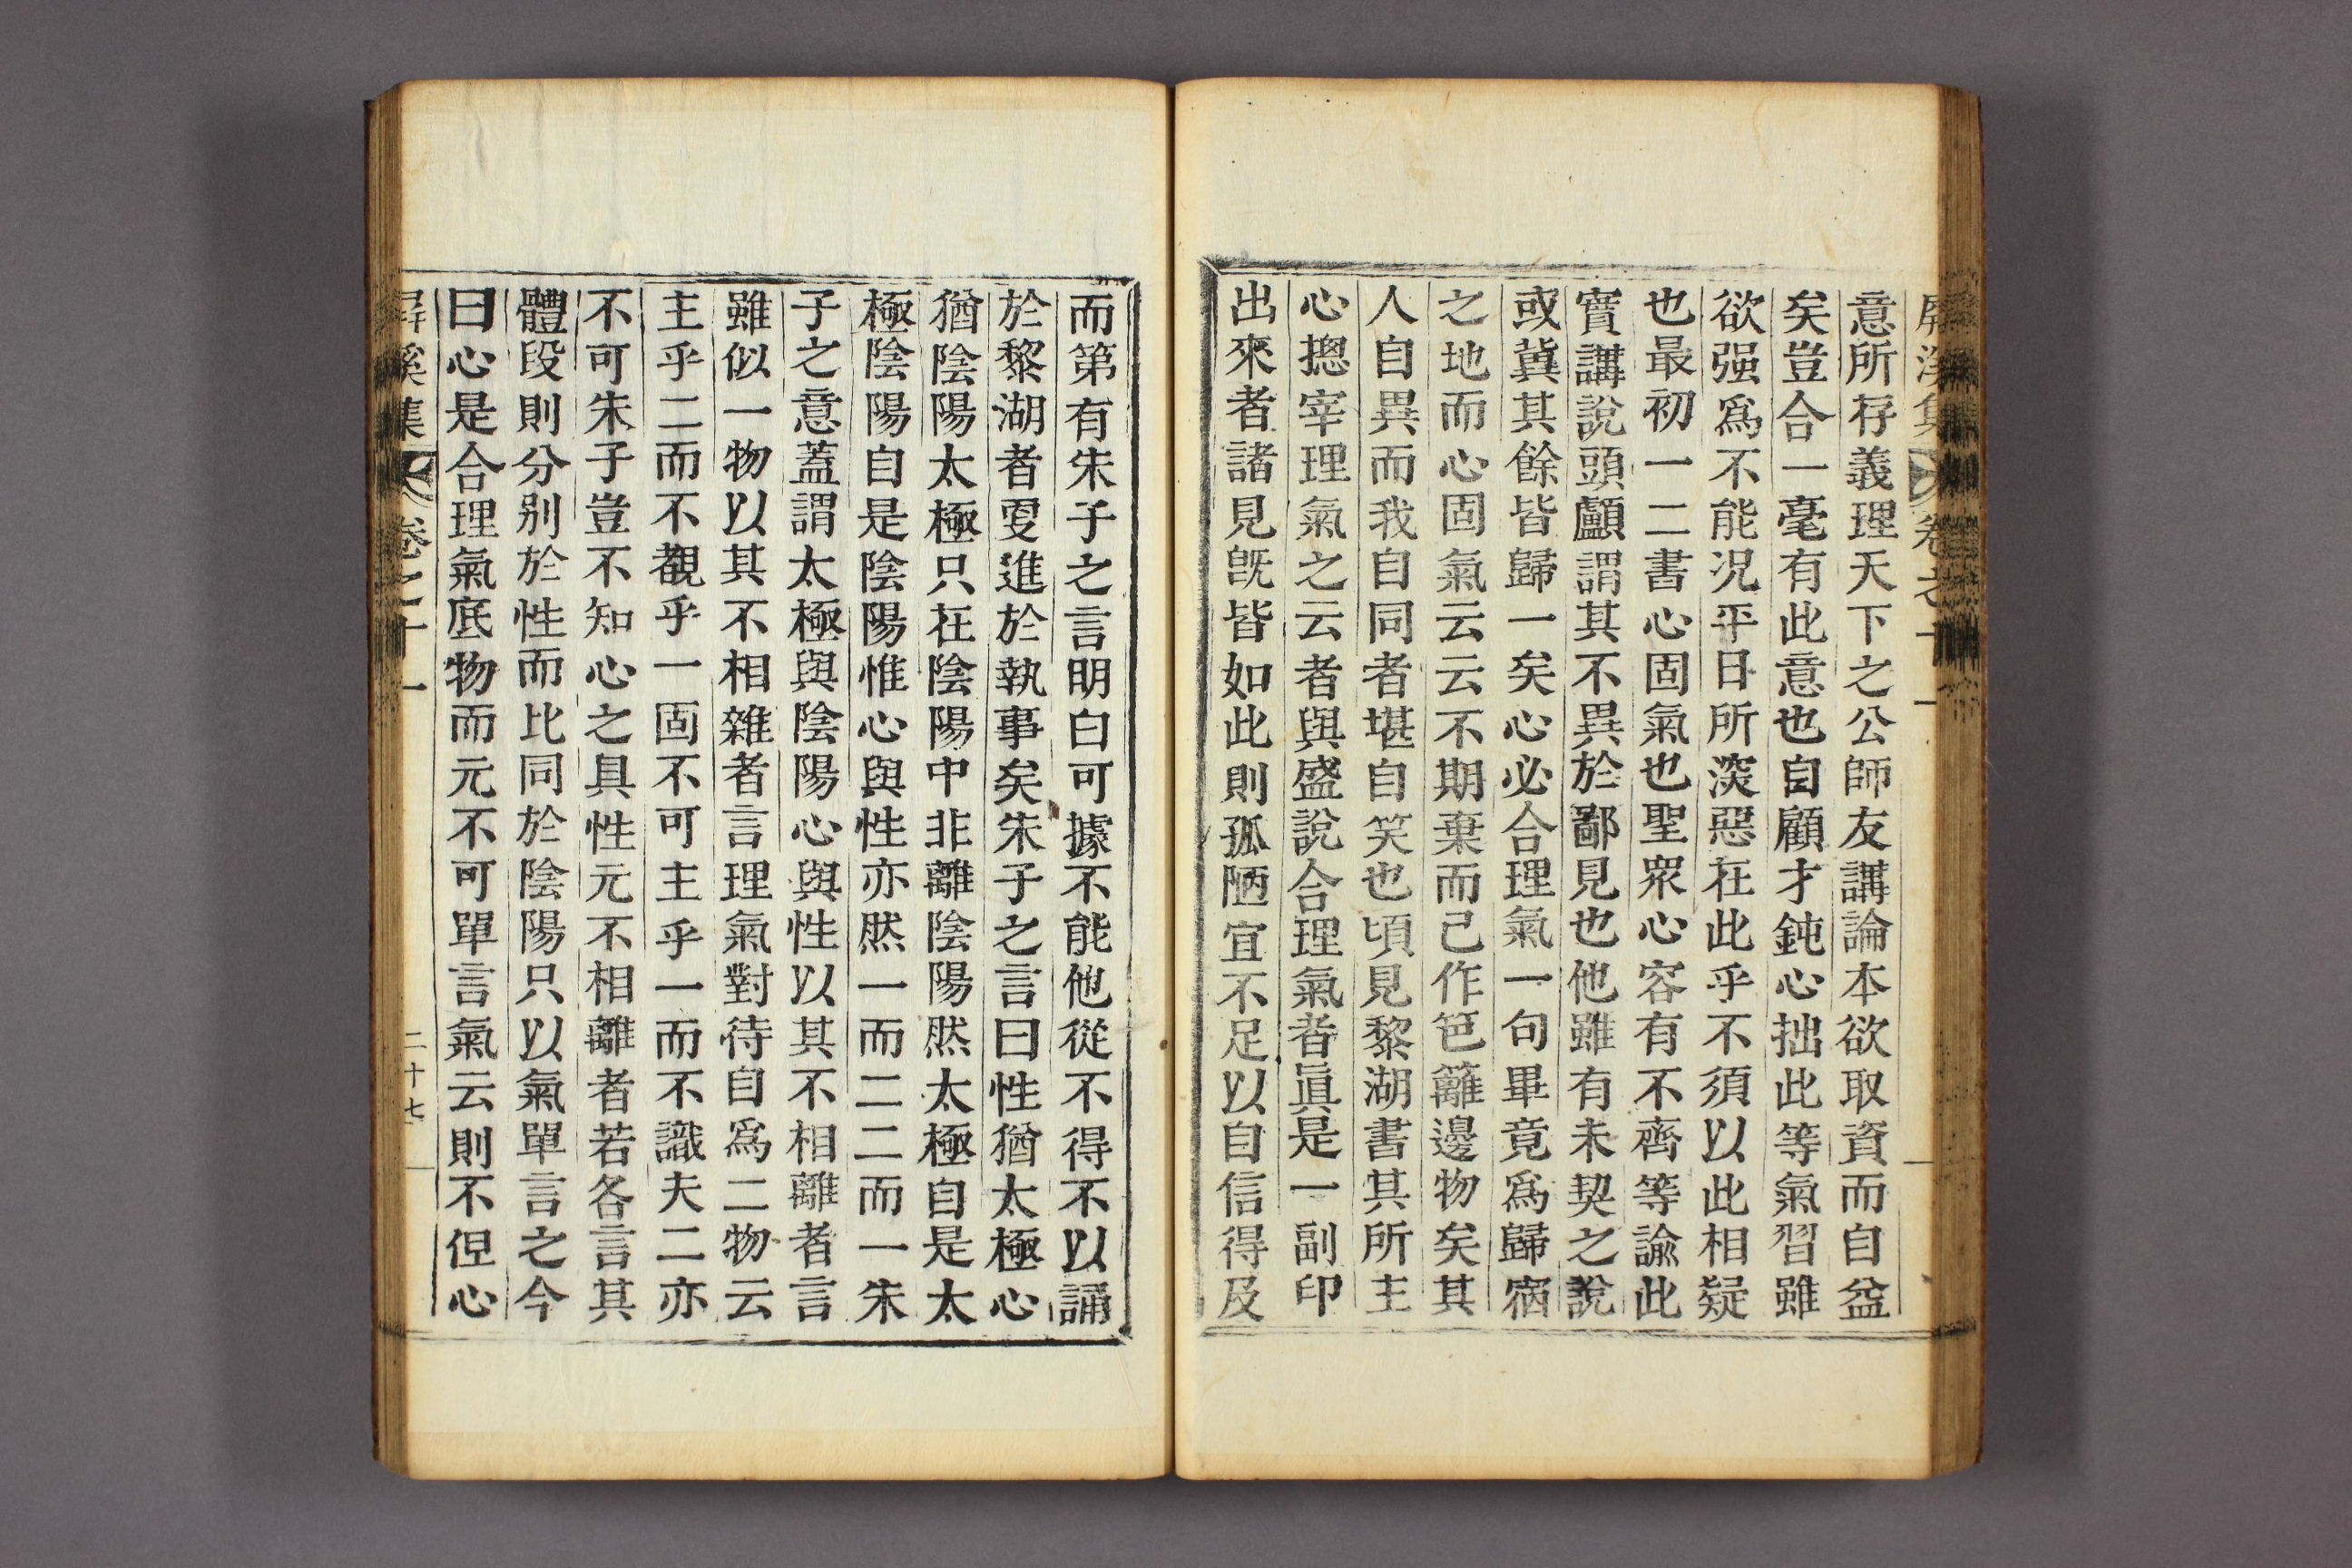 屛溪集 卷之十一
意所存義理天下之公師友講論本欲取資而自益
矣豈合一毫有此意也自顧才鈍心拙此等氣習雖
欲强爲不能況平日所深惡在此乎不須以此相疑
也最初一二書心固氣也聖衆心容有不齊等諭此
實講說頭顱謂其不異於鄙見也他雖有未契之說
或冀其餘皆歸一矣心必合理氣一句畢竟爲歸宿
之地而心固氣云云不期棄而己作笆籬邊物矣其
人自異而我自同者堪自笑也頃見黎湖書其所主
心摠宰理氣之云者與盛說合理氣者眞是一副印
出來者諸見旣皆如此則孤陋宜不足以自信得及
而第有朱子之言明白可據不能他從不得不以誦
於黎湖者更進於執事矣朱子之言曰性猶太極心
猶陰陽太極只在陰陽中非離陰陽然太極自是太
極陰陽自是陰陽惟心與性亦然一而二二而一朱
子之意蓋謂太極與陰陽心與性以其不相離者言
雖似一物以其不相雜者言理氣對待自爲二物云
主乎二而不觀乎一固不可主乎一而不識夫二亦
不可朱子豈不知心之具性元不相離者若各言其
體段則分別於性而比同於陰陽只以氣單言之今
曰心是合理氣底物而元不可單言氣云則不但心
屛溪集 卷之十一 二十七